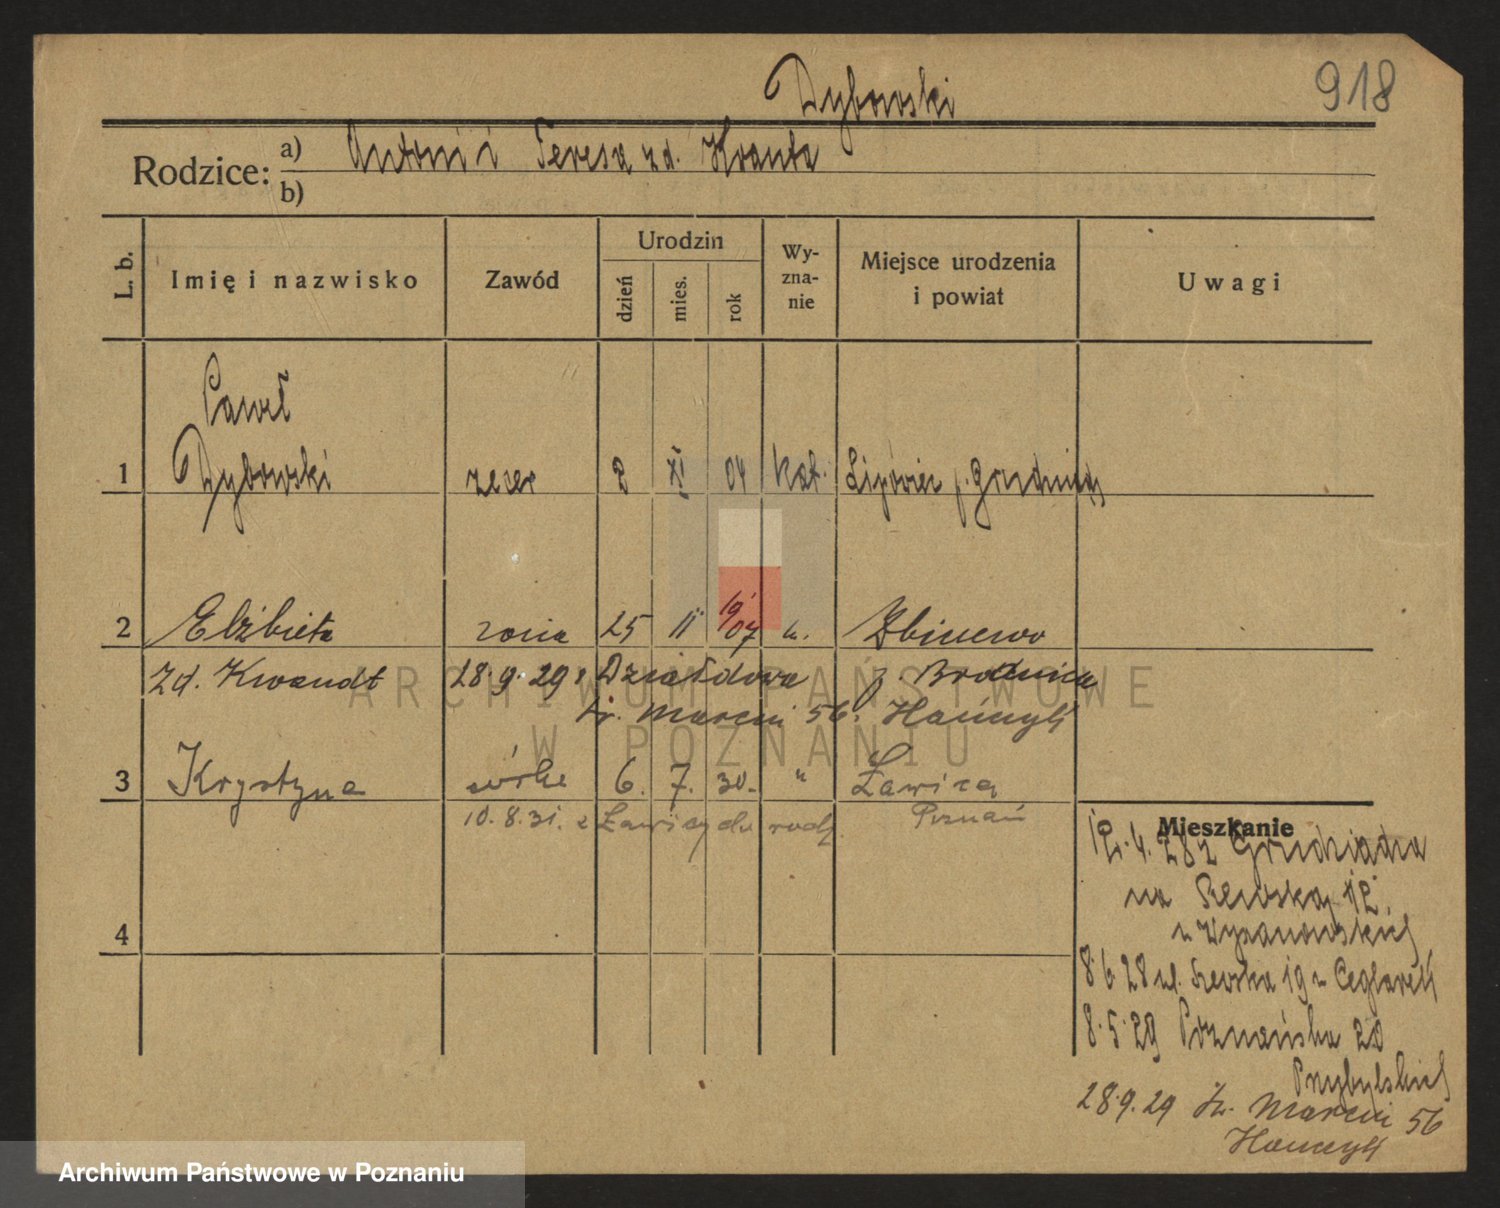 918
Dybowski
Rodzice: a) Antoni i Teresa zd.
b)
L. b. Imię i nazwisko Zawód Urodzin dzień mies. rok Wy-zna-nie Miejsce urodzenia i powiat Uwagi
Paweł
1 Dybowski zecer 2 XI 04 kat. Lipowiec p.
2 Elżbieta żona 25 II 19/07 k. Zbiczno
zd. Kwandt 28.9.29 z Działdowa p. Brodnica
św. Marcin 56.
3 Krystyna córka 6. 7. 30. " Ławica
10. 8. 31. z Ławicy do rodz. Poznań
Mieszkanie
12.4.28 z Grudziądza
na Szewską 12.
4
8.6.28 ul. Szewska 19
8.5.29 Poznańska 20
Przybylski
28.9.29 św. Marcin 56
ARCHIWUM PAŃSTWOWE
W POZNANIU
Archiwum Państwowe w Poznaniu